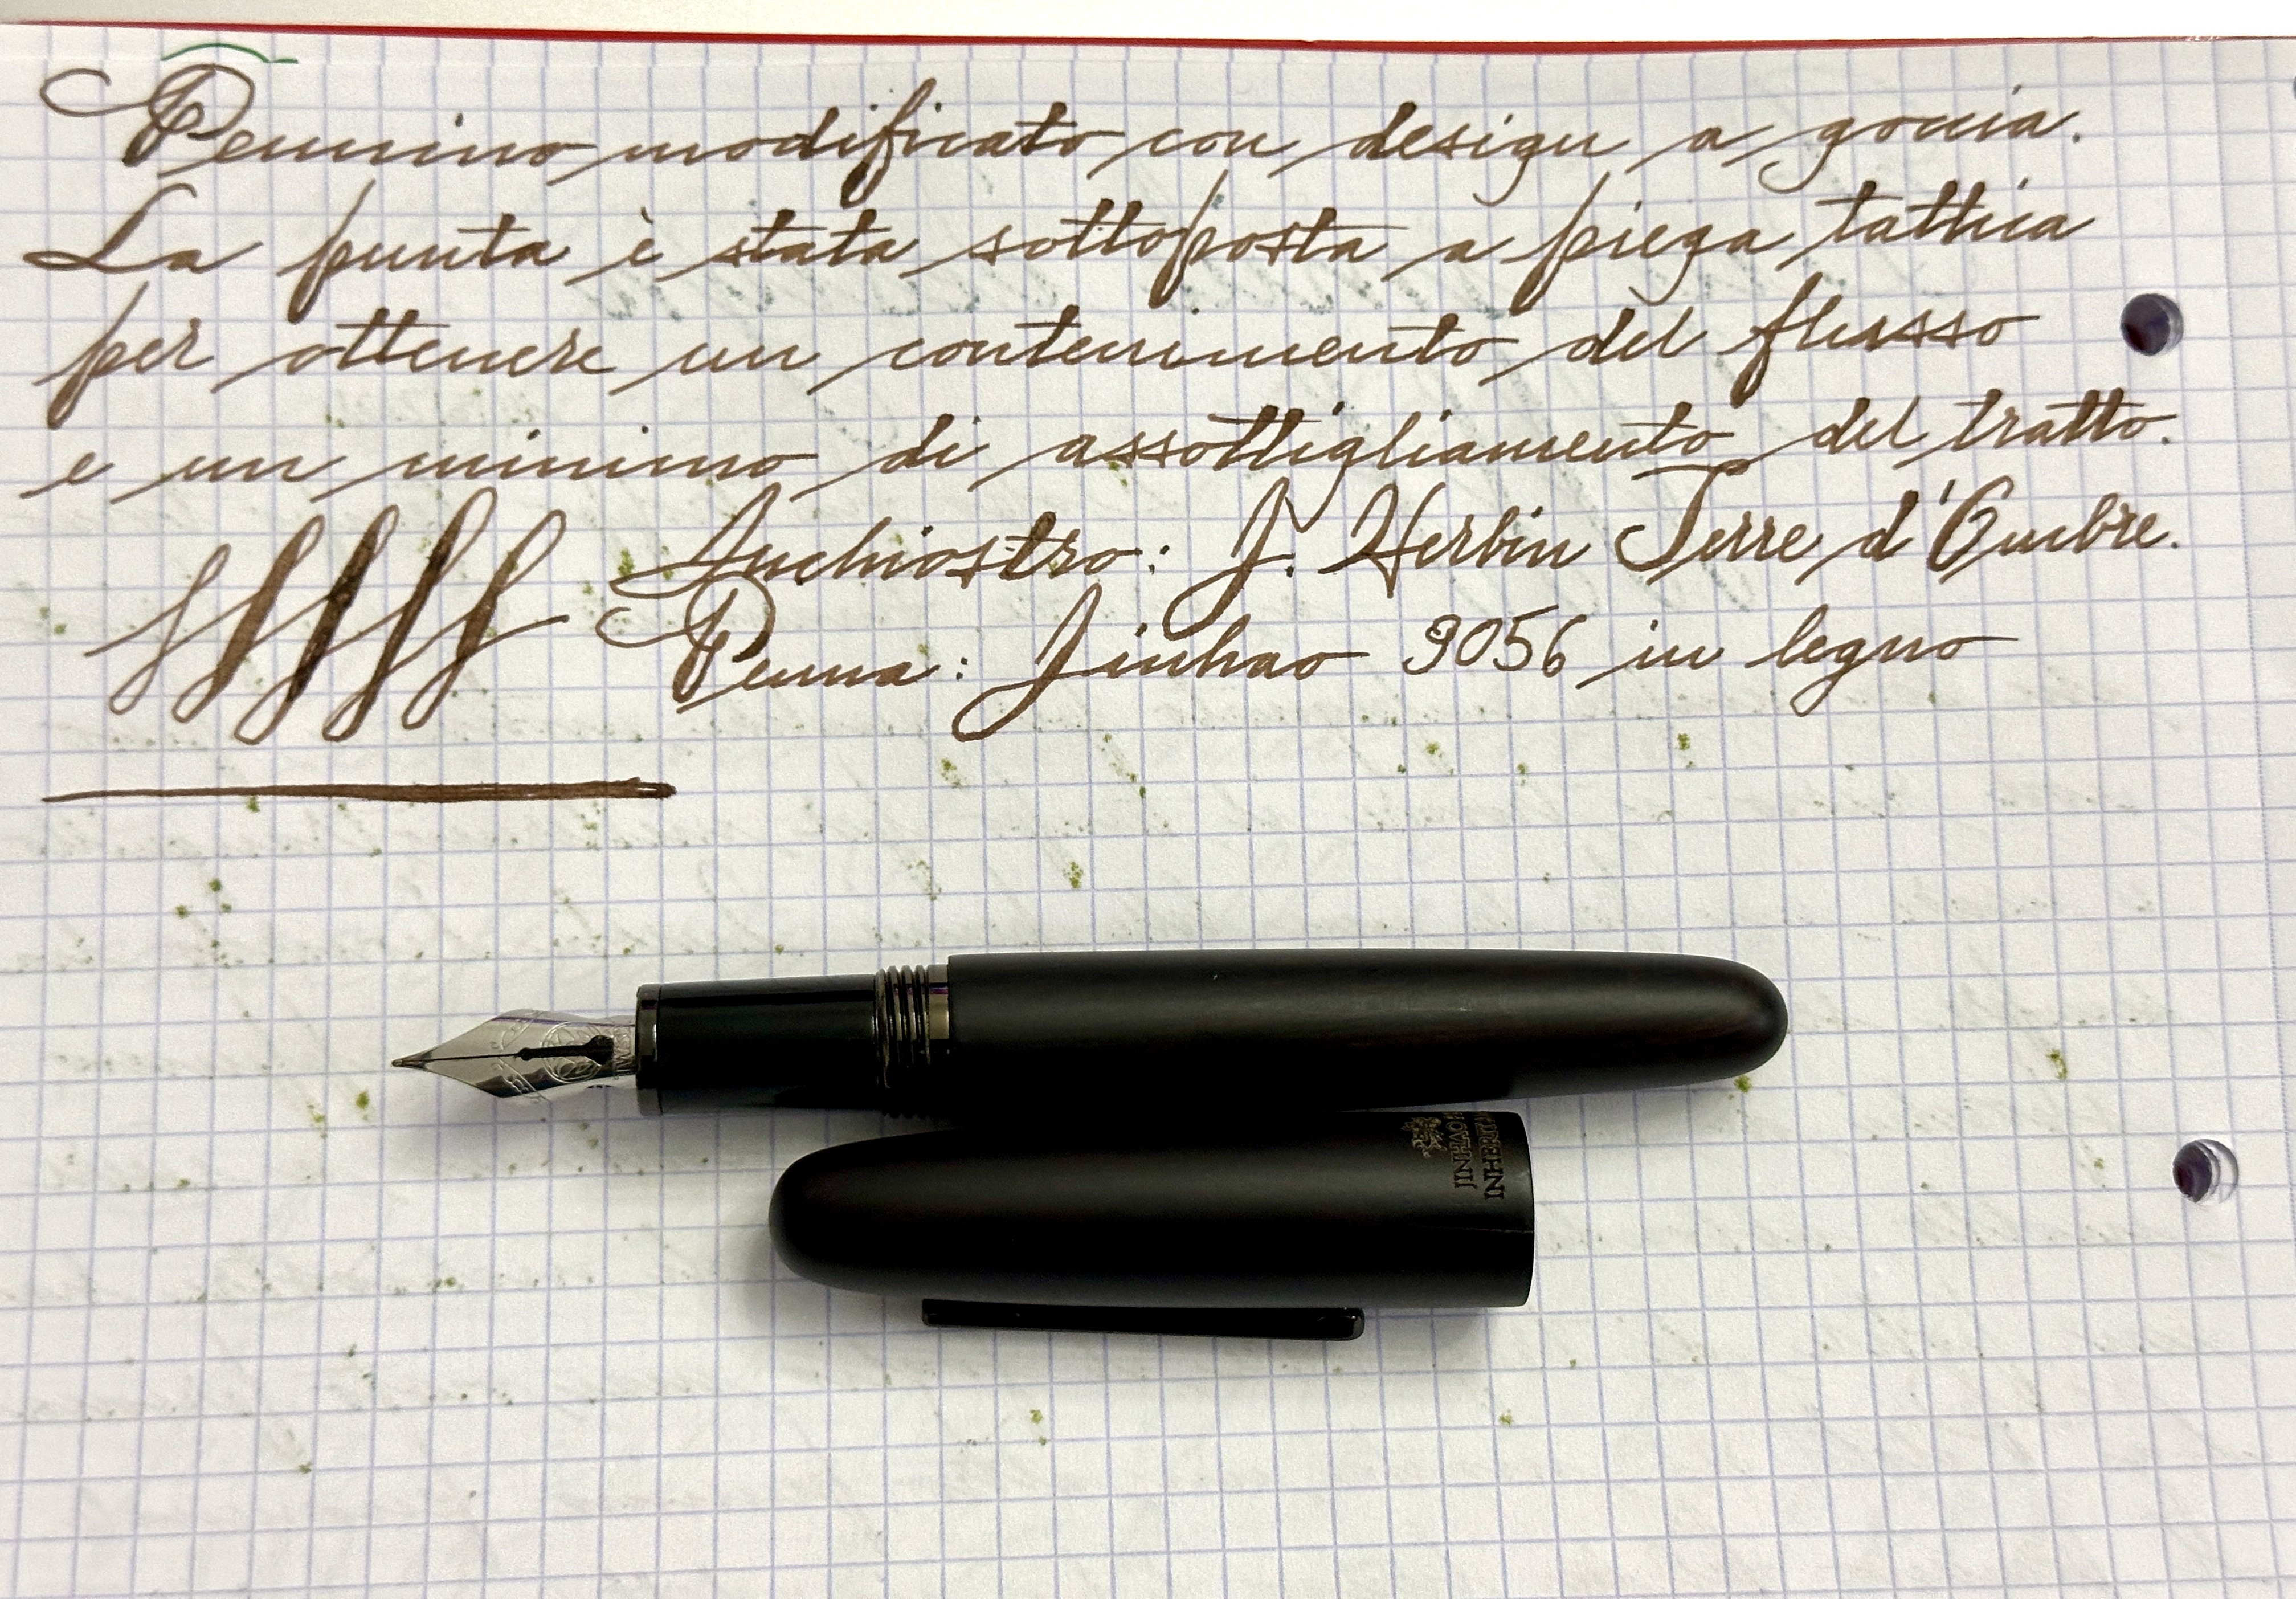 Pennino modificato con design a goccia.
La punta è stata sottoposta a piega tattica
per ottenere un contenimento del flusso
e un minimo di assottigliamento del tratto.
Inchiostro: J. Herbin Terre d'Ombre.
Penna: Jinhao 9056 in legno
JINHAO